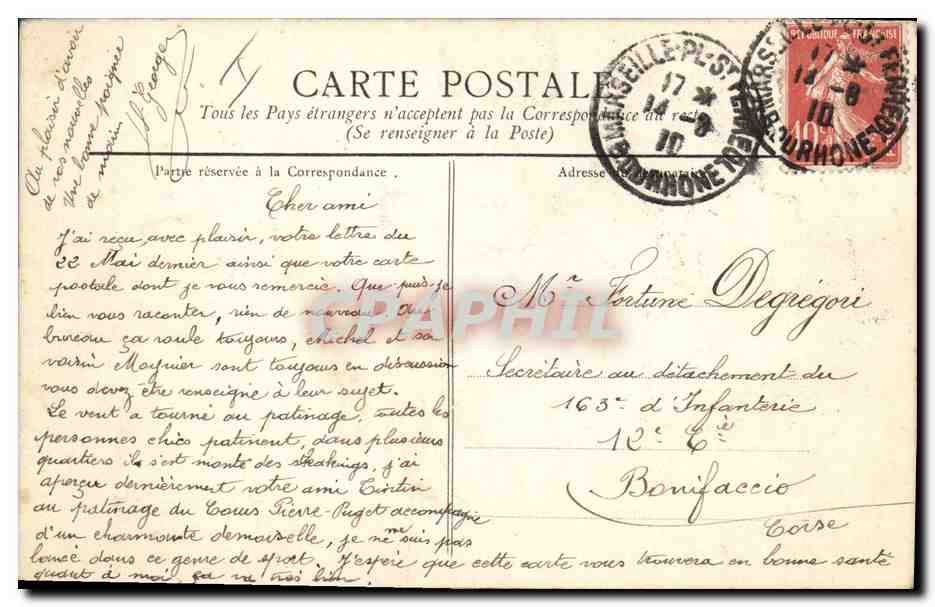 CARTE POSTALE
Tous les Pays étrangers n'acceptent pas la Correspondance au recto
(Se renseigner à la Poste)
Partie réservée à la Correspondance.
Adresse du destinataire
RÉPUBLIQUE FRANÇAISE
10c
MARSEILLE-PL-ST FERREOL
17 *
14 -8
10
B. DU RHONE
MARSEILLE-PL-ST FERREOL
17 *
14 -8
10
B. DU RHONE
Cher ami
J'ai reçu avec plaisir, votre lettre du
22 Mai dernier ainsi que votre carte
postale dont je vous remercie. Que puis-je
bien vous raconter, rien de nouveau. Au
bureau ça roule toujours, Michel et son
voisin Magnier sont toujours en discussion
vous devez être renseigné à leur sujet.
Le vent a tourné au patinage, toutes les
personnes chics patinent, dans plusieurs
quartiers ils s'est monté des skakings, j'ai
aperçu dernièrement votre ami Tintin
au patinage du Cours Pierre-Puget accompagné
d'un charmante demoiselle, je me suis pas
lancé dans ce genre de sport. J'espère que cette carte vous trouvera en bonne santé
quant à moi, ça va très bien.
Au plaisir d'avoir
de vos nouvelles
Une bonne poignée
de mains
Georges
Mr Fortuné Degrégori
Secrétaire au détachement du
163e d'Infanterie
12e Cie
Bonifaccio
Corse
CPAPHIL